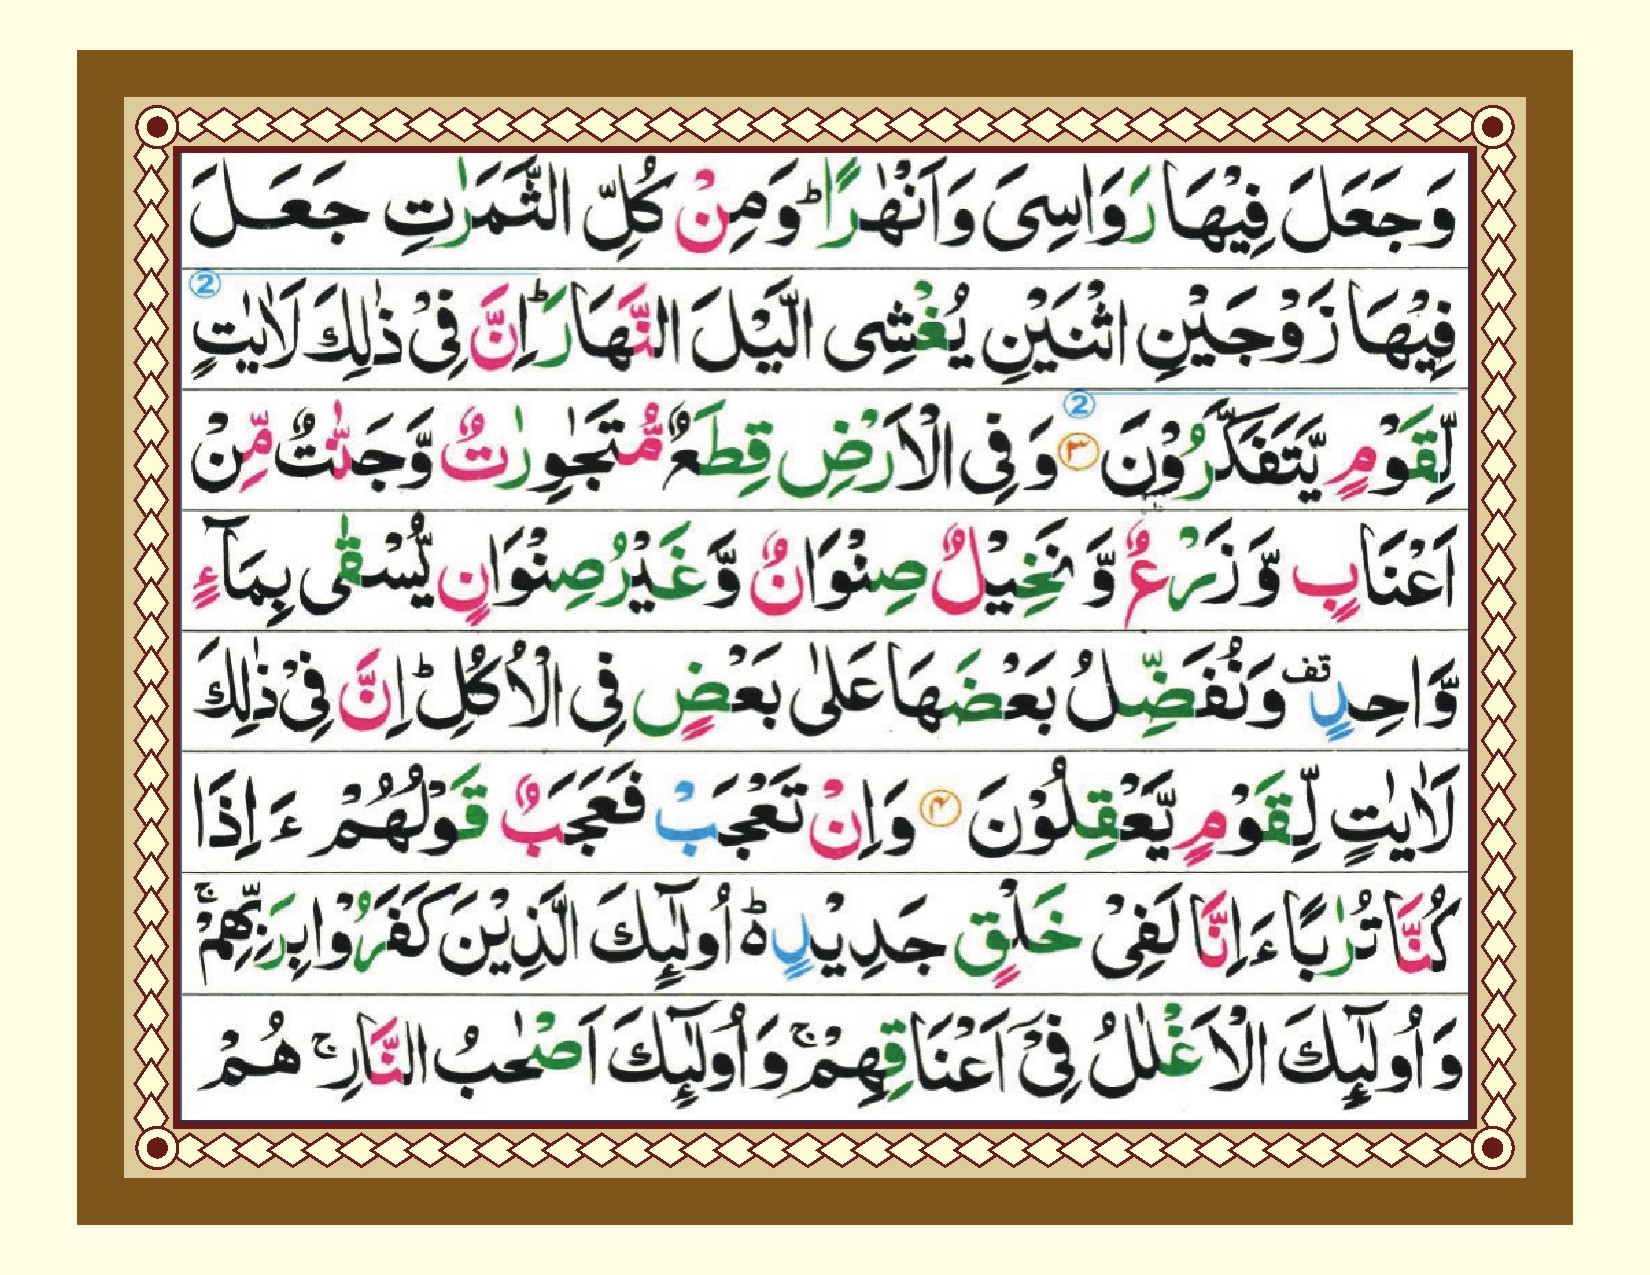 وَجَعَلَ فِيْهَا رَوَاسِىَ وَاَنْهٰرًا ؕ وَمِنْ كُلِّ الثَّمَرٰتِ جَعَلَ
فِيْهَا زَوْجَيْنِ اثْنَيْنِ يُغْشِى الَّيْلَ النَّهَارَ ؕ اِنَّ فِىْ ذٰلِكَ لَاٰيٰتٍ 2
لِّقَوْمٍ يَّتَفَكَّرُوْنَ ۳ 2 وَ فِى الْاَرْضِ قِطَعٌ مُّتَجٰوِرٰتٌ وَّجَنّٰتٌ مِّنْ
اَعْنَابٍ وَّ زَرْعٌ وَّ نَخِيْلٌ صِنْوَانٌ وَّ غَيْرُ صِنْوَانٍ يُّسْقٰى بِمَآءٍ
وَّاحِدٍ قف وَنُفَضِّلُ بَعْضَهَا عَلٰى بَعْضٍ فِى الْاُكُلِ ؕ اِنَّ فِىْ ذٰلِكَ
لَاٰيٰتٍ لِّقَوْمٍ يَّعْقِلُوْنَ ۴ وَاِنْ تَعْجَبْ فَعَجَبٌ قَوْلُهُمْ ءَاِذَا
كُنَّا تُرٰبًا ءَاِنَّا لَفِىْ خَلْقٍ جَدِيْدٍ ؕ۵ اُولٰٓئِكَ الَّذِيْنَ كَفَرُوْا بِرَبِّهِمْ ۚ
وَ اُولٰٓئِكَ الْاَغْلٰلُ فِىْٓ اَعْنَاقِهِمْ ۚ وَ اُولٰٓئِكَ اَصْحٰبُ النَّارِ ۚ هُمْ